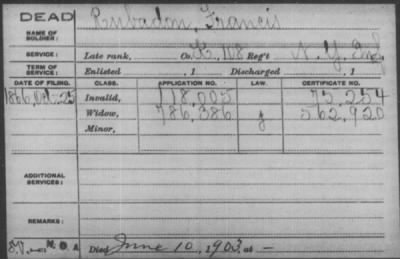 DEAD
NAME OF SOLDIER: Rubadon, Francis
SERVICE: Late rank, Co. K, 118 Reg't N.Y. Inf
TERM OF SERVICE: Enlisted , 1 Discharged , 1
DATE OF FILING. CLASS. APPLICATION NO. LAW. CERTIFICATE NO.
1866, Oct. 25 Invalid, 118,005 75,254
Widow, 786,386 g 562,920
Minor,
ADDITIONAL SERVICES:
REMARKS:
Died June 10, 1903, at —